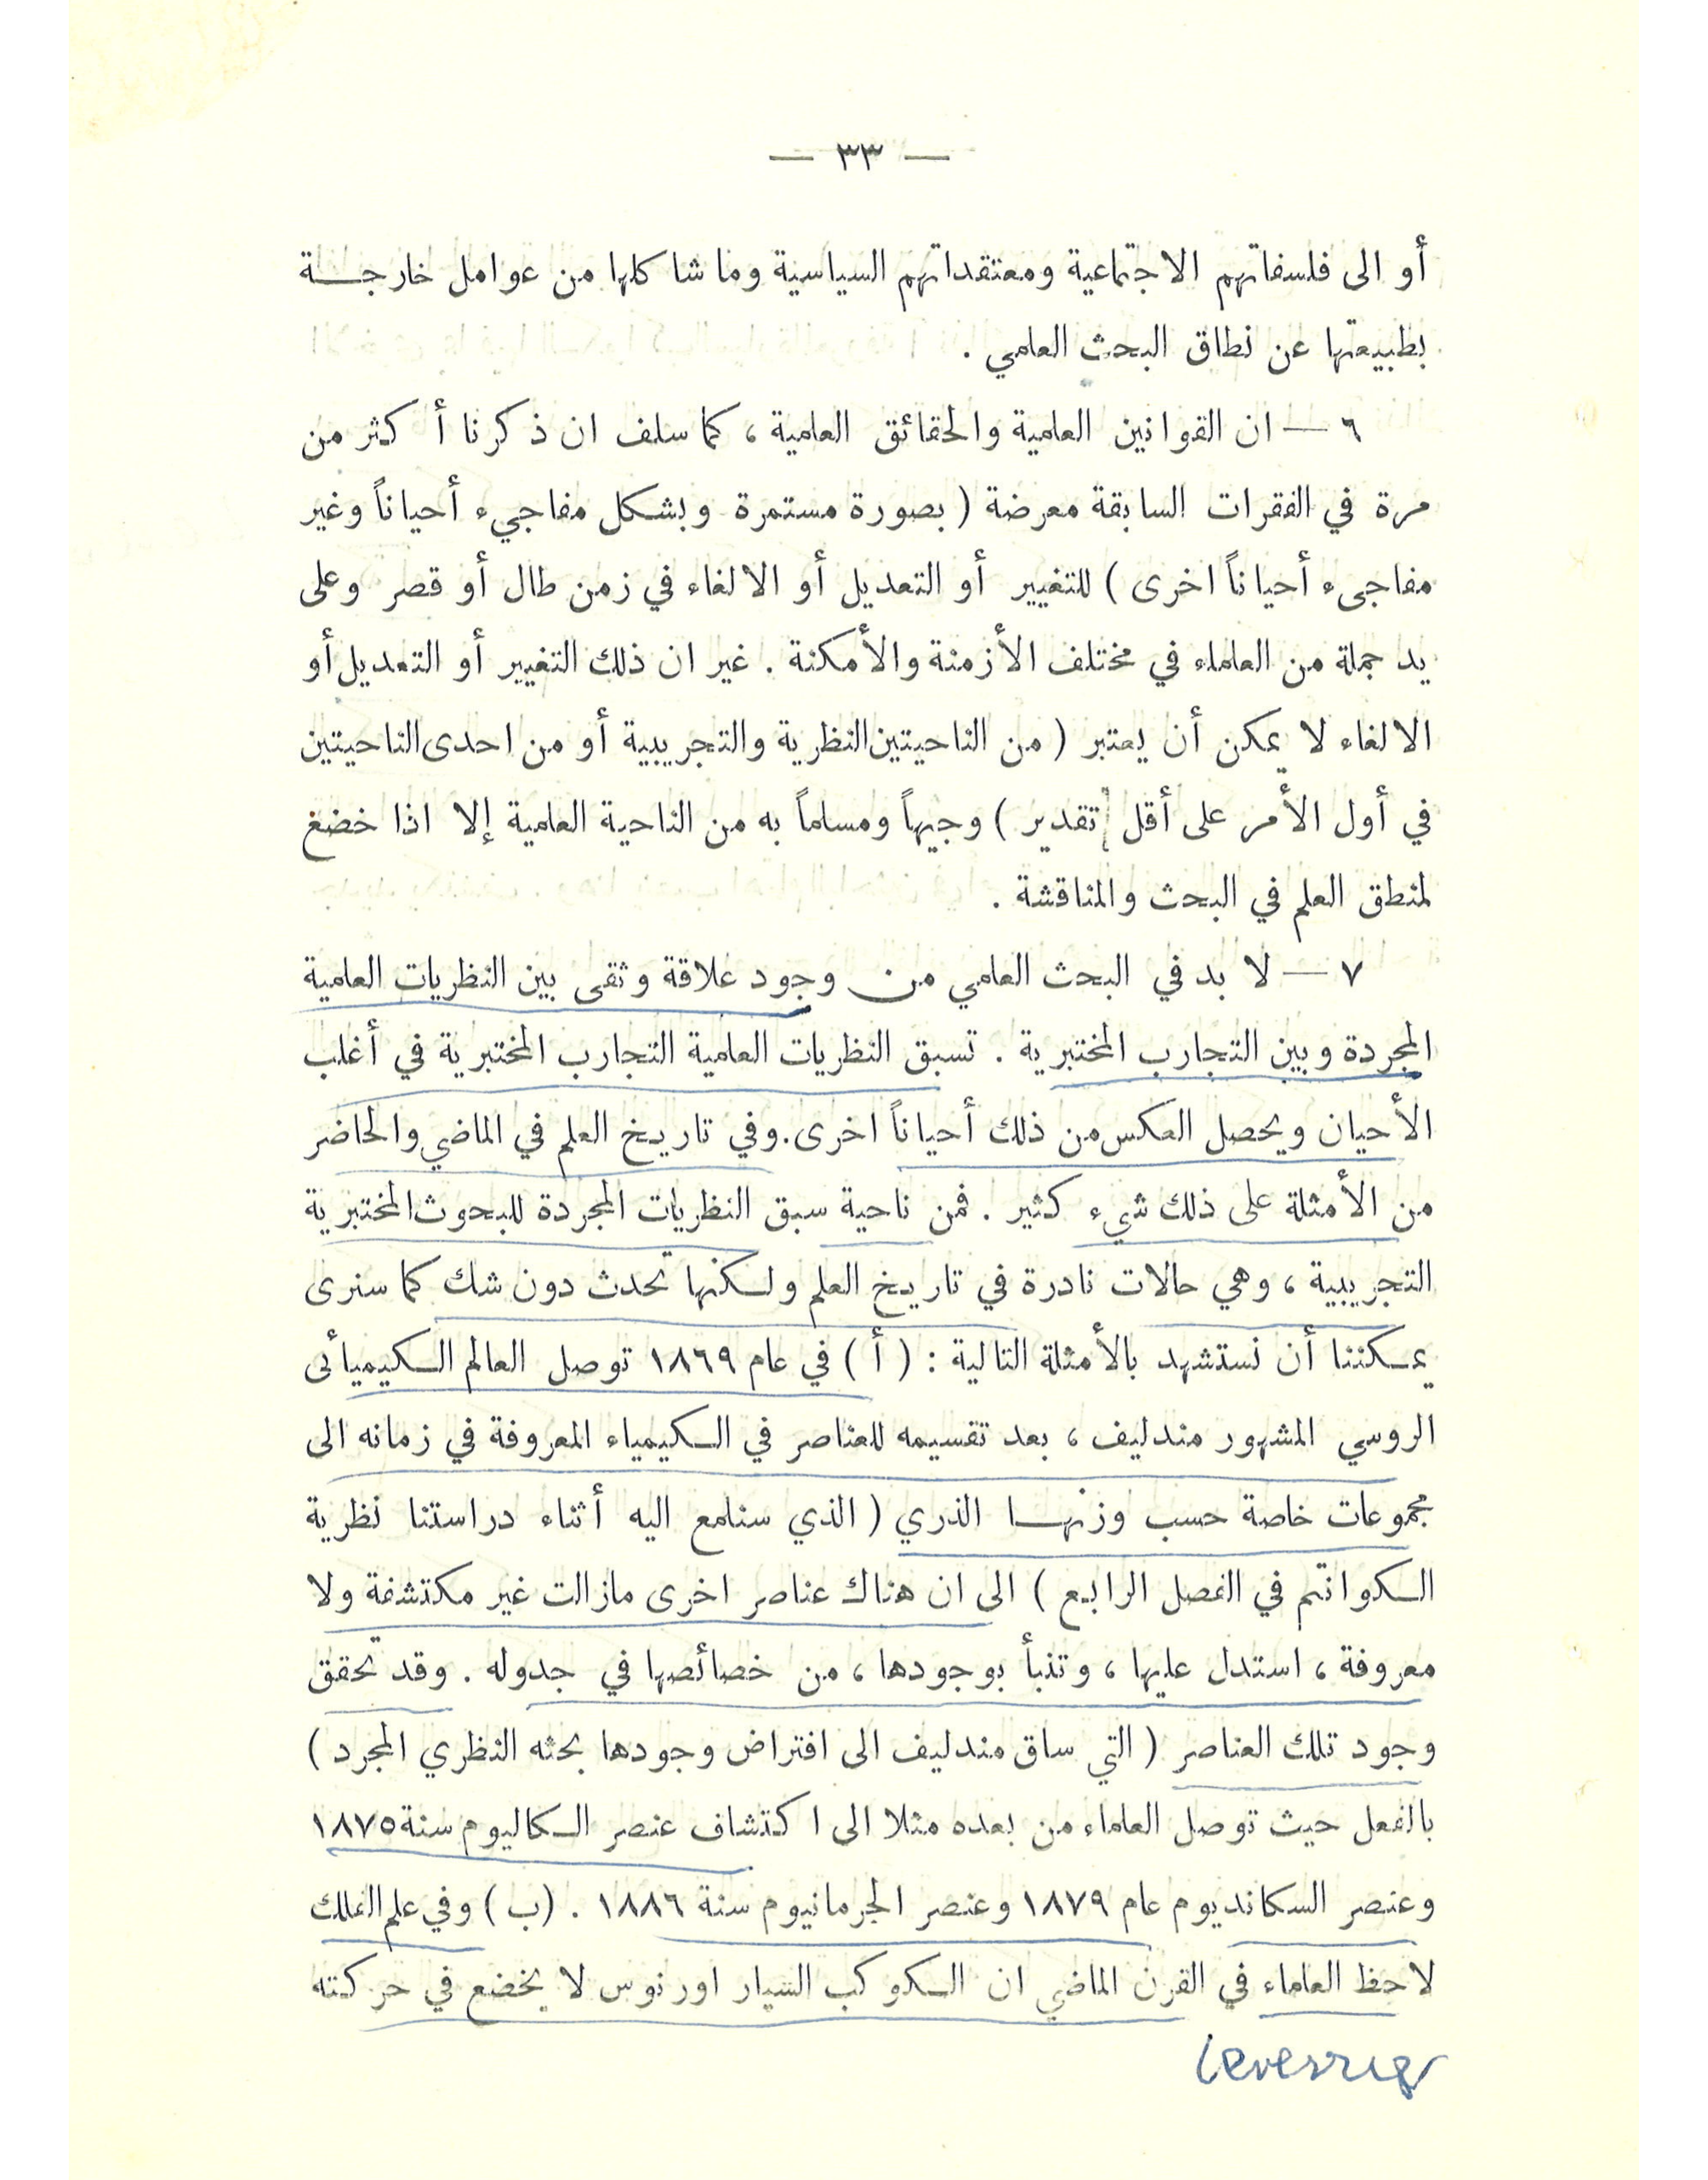 — ٣٣ —
أو الى فلسفاتهم الاجتماعية ومعتقداتهم السياسية وما شاكلها من عوامل خارجة
بطبيعتها عن نطاق البحث العلمي .
٦ — ان القوانين العلمية والحقائق العلمية ، كما سلف ان ذكرنا أكثر من
مرة في الفقرات السابقة معرضة ( بصورة مستمرة وبشكل مفاجيء أحياناً وغير
مفاجىء أحياناً اخرى ) للتغيير أو التعديل أو الالغاء في زمن طال أو قصر وعلى
يد جملة من العلماء في مختلف الأزمنة والأمكنة . غير ان ذلك التغيير أو التعديل أو
الالغاء لا يمكن أن يعتبر ( من الناحيتين النظرية والتجريبية أو من احدى الناحيتين
في أول الأمر على أقل تقدير ) وجيهاً ومسلماً به من الناحية العلمية إلا اذا خضع
لمنطق العلم في البحث والمناقشة .
٧ — لا بد في البحث العلمي من وجود علاقة وثقى بين النظريات العلمية
المجردة وبين التجارب المختبرية . تسبق النظريات العلمية التجارب المختبرية في أغلب
الأحيان ويحصل العكس من ذلك أحياناً اخرى . وفي تاريخ العلم في الماضي والحاضر
من الأمثلة على ذلك شيء كثير . فمن ناحية سبق النظريات المجردة للبحوث المختبرية
التجريبية ، وهي حالات نادرة في تاريخ العلم ولكنها تحدث دون شك كما سنرى
يمكننا أن نستشهد بالأمثلة التالية : ( أ ) في عام ١٨٦٩ توصل العالم الكيميائى
الروسي المشهور مندليف ، بعد تقسيمه للعناصر في الكيمياء المعروفة في زمانه الى
مجموعات خاصة حسب وزنها الذري ( الذي سنلمع اليه أثناء دراستنا نظرية
الكوانتم في الفصل الرابع ) الى ان هناك عناصر اخرى مازالت غير مكتشفة ولا
معروفة ، استدل عليها ، وتنبأ بوجودها ، من خصائصها في جدوله . وقد تحقق
وجود تلك العناصر ( التي ساق مندليف الى افتراض وجودها بحثه النظري المجرد )
بالفعل حيث توصل العلماء من بعده مثلا الى اكتشاف عنصر الكاليوم سنة ١٨٧٥
وعنصر السكانديوم عام ١٨٧٩ وعنصر الجرمانيوم سنة ١٨٨٦ . (ب) وفي علم الفلك
لاحظ العلماء في القرن الماضي ان الكوكب السيار اورنوس لا يخضع في حركته